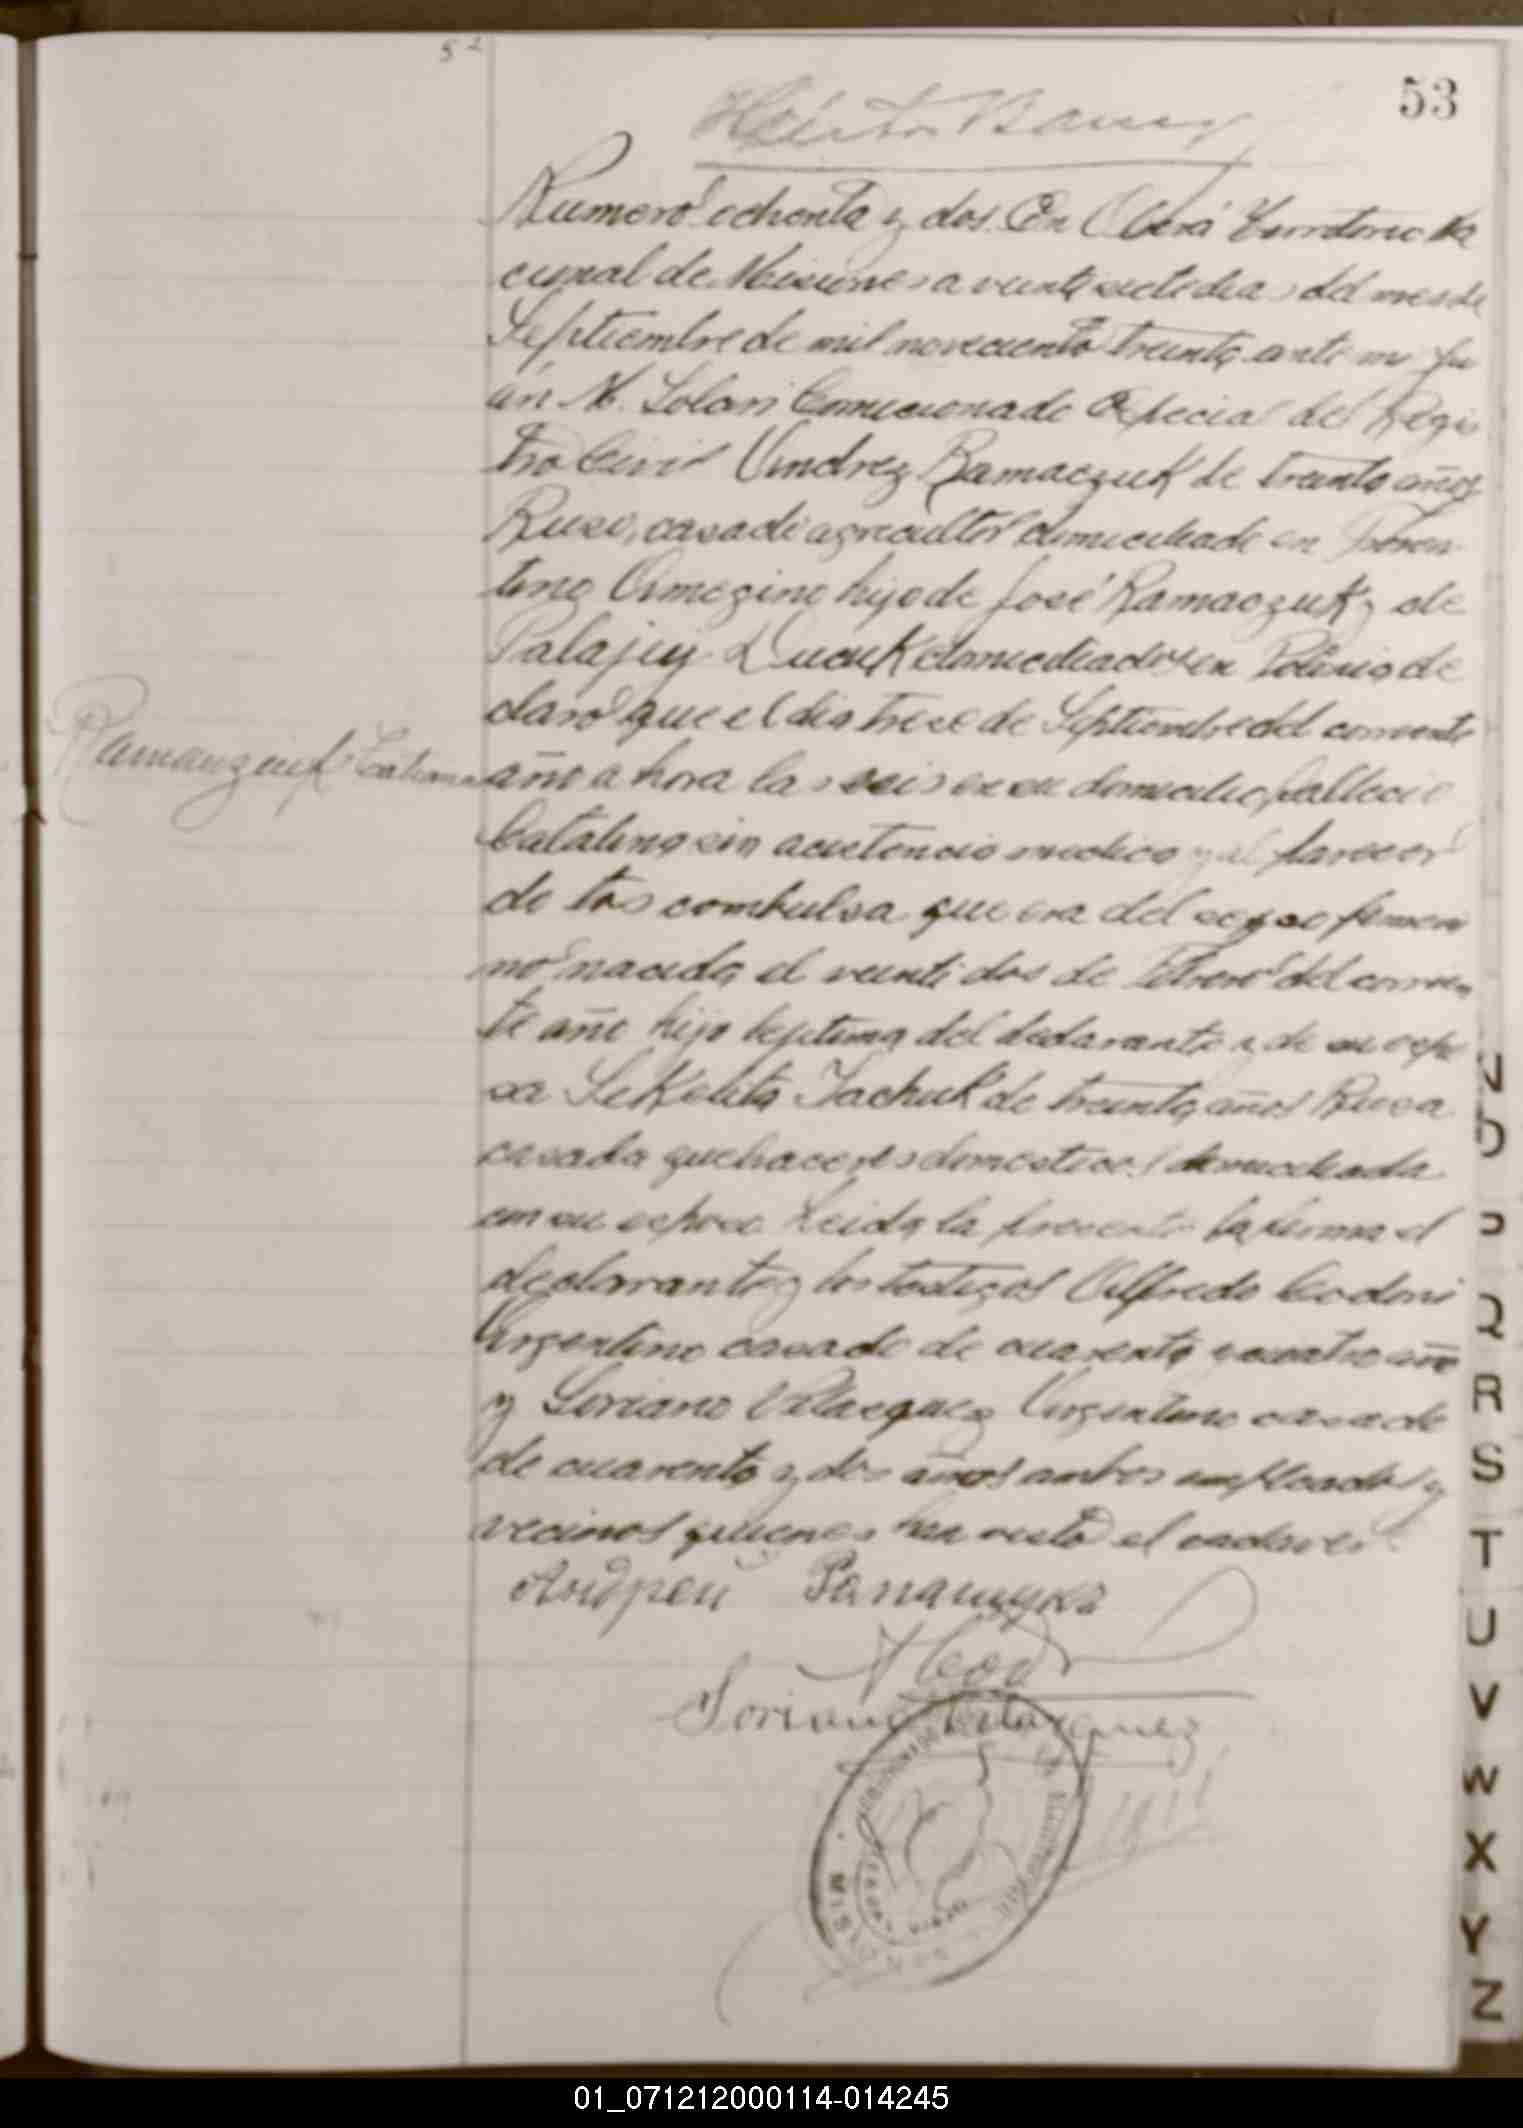 53
Numero ochenta y dos. En Oberá Territorio Na
cional de Misiones a veintisiete dias del mes de
Septiembre de mil novecientos treinta ante mi Ju
an M. Solari Comicionado Especial del Regis
tro Civil Andrez Ramaczuk de treinta años
Ruso, casado agricultor domiciliado en
Ameqino hijo de José Ramaczuk y de
Palajiy Lucuk domiciliados en Polonia de
claró que el dia trese de Septiembre del corriente
Ramanzcuk Catalina
año a hora las seis en su domicilio fallecio
Catalina sin acistencia medica y al parecer
de tos combulsa que era del sexso femeni
no nacida el veintidos de Febrero del corrien
te año hija lejitima del declarante y de su espo
sa Tachuk de treinta años Rusa
casada quehaceres domesticos domiciliada
con su esposo. Leida la presente la firma el
declarrante y los testigos Alfredo Codoni
Argentino casado de cuarenta y cuatro año
y Soriano Velasquez Argentino casado
de cuarenta y dos años ambos empleados y
vecinos quienes han visto el cadaver.
Soriano Velazquez
D
P
Q
R
S
T
U
V
W
X
Y
Z
01_071212000114-014245